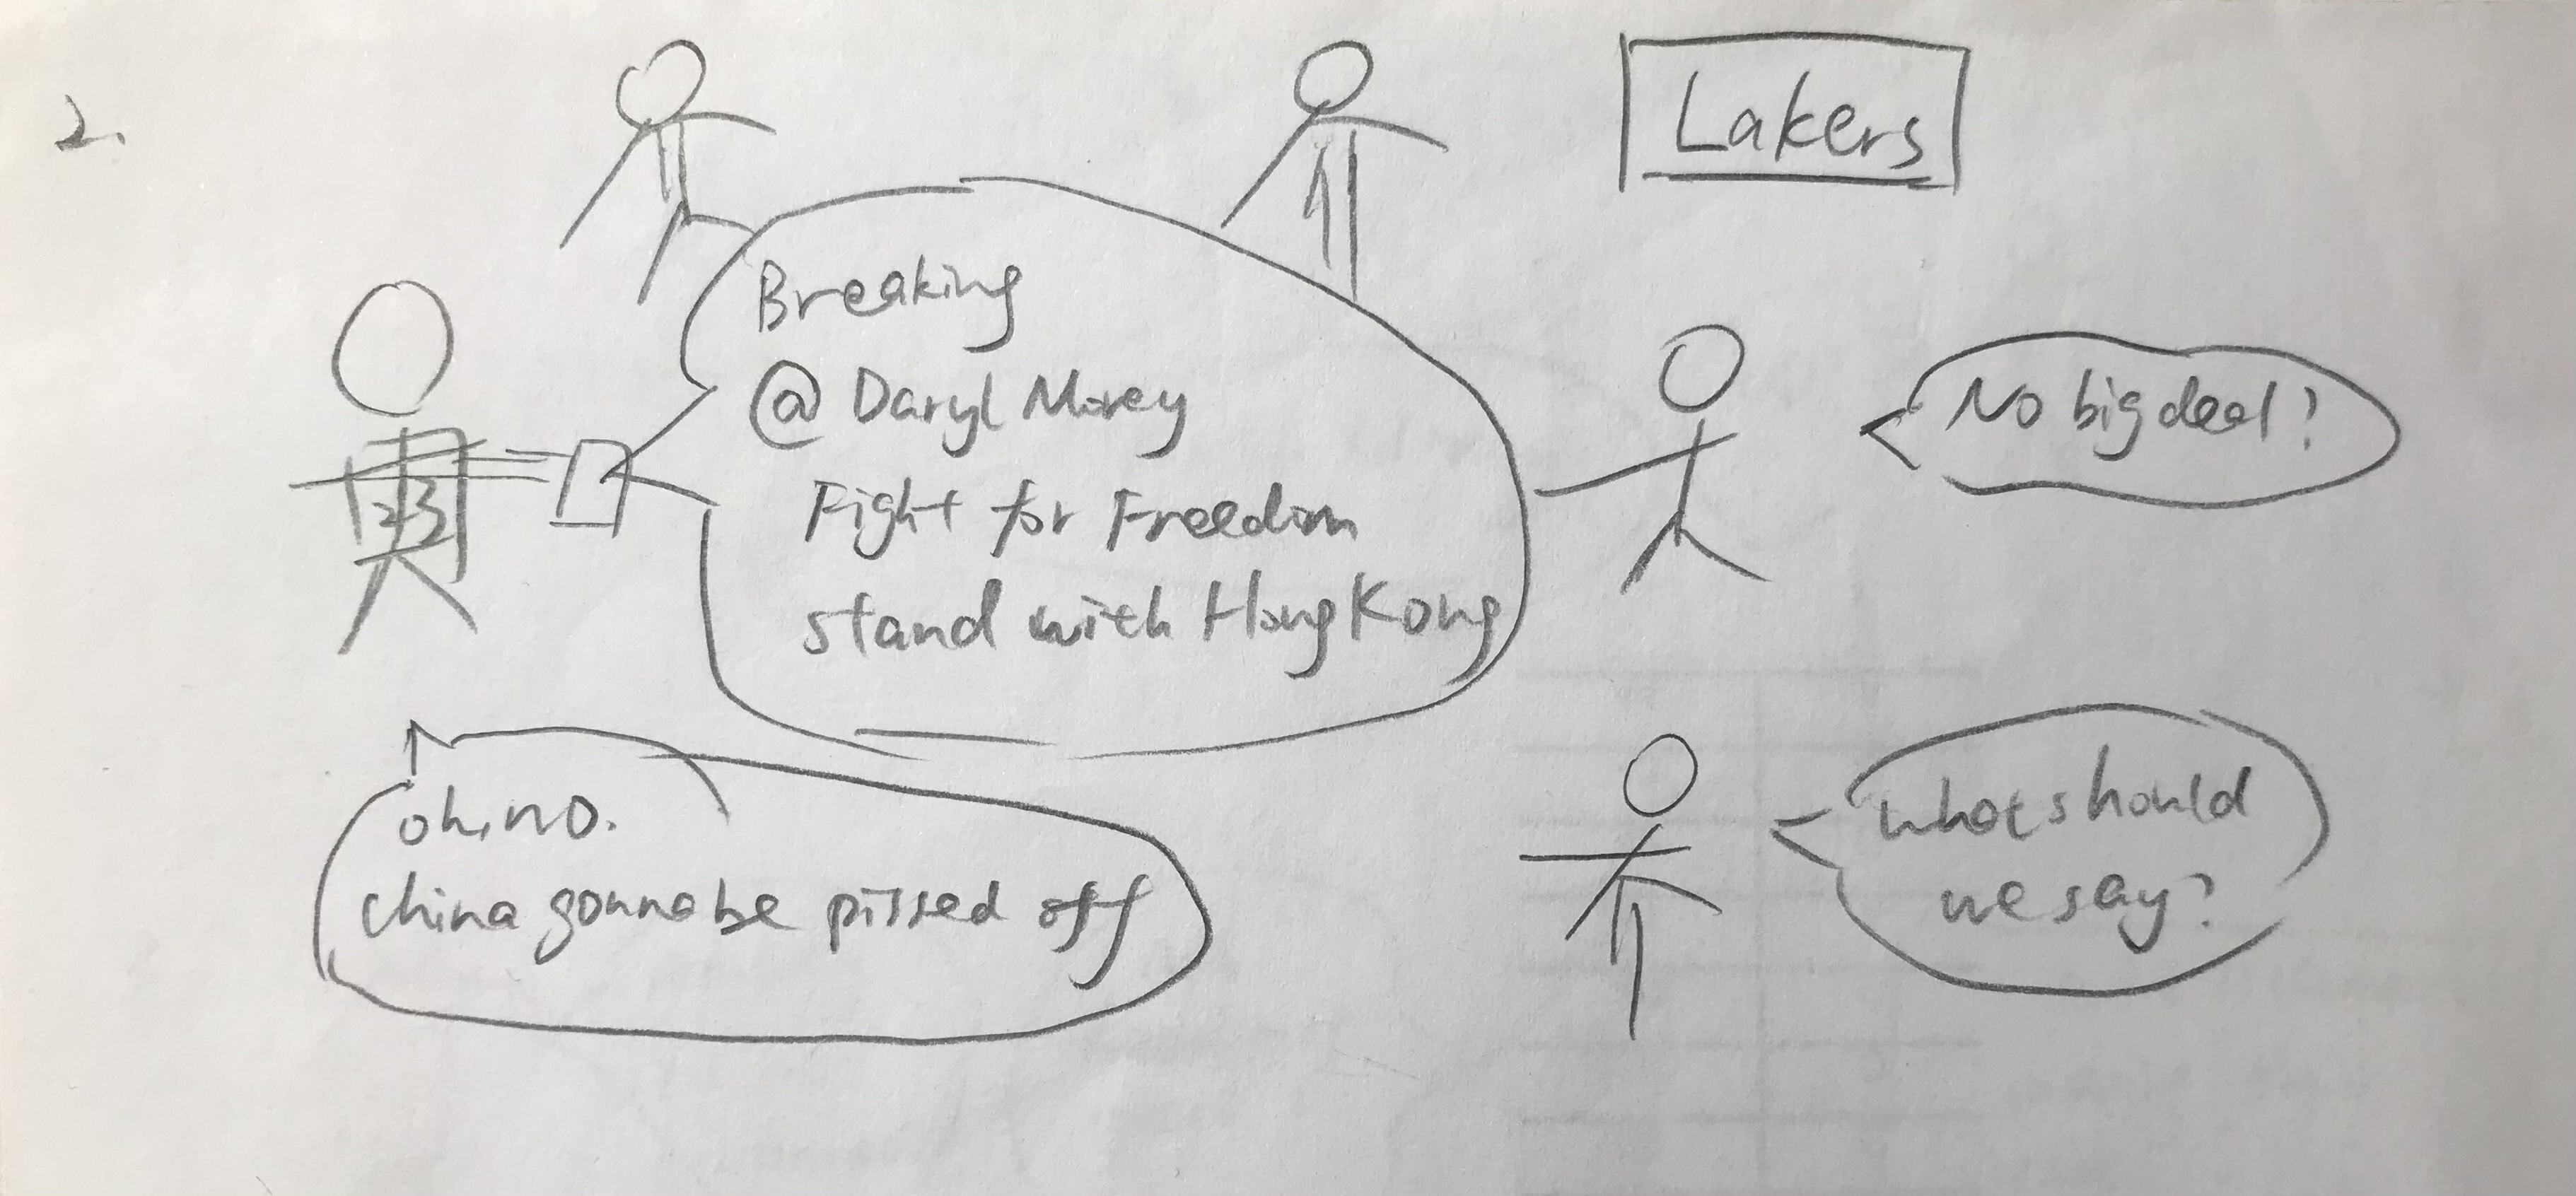 2.
Lakers
Breaking
@ Daryl Morey
Fight for Freedom
stand with HongKong
23
No big deal?
oh, no.
china gonna be pissed off
what should
we say?